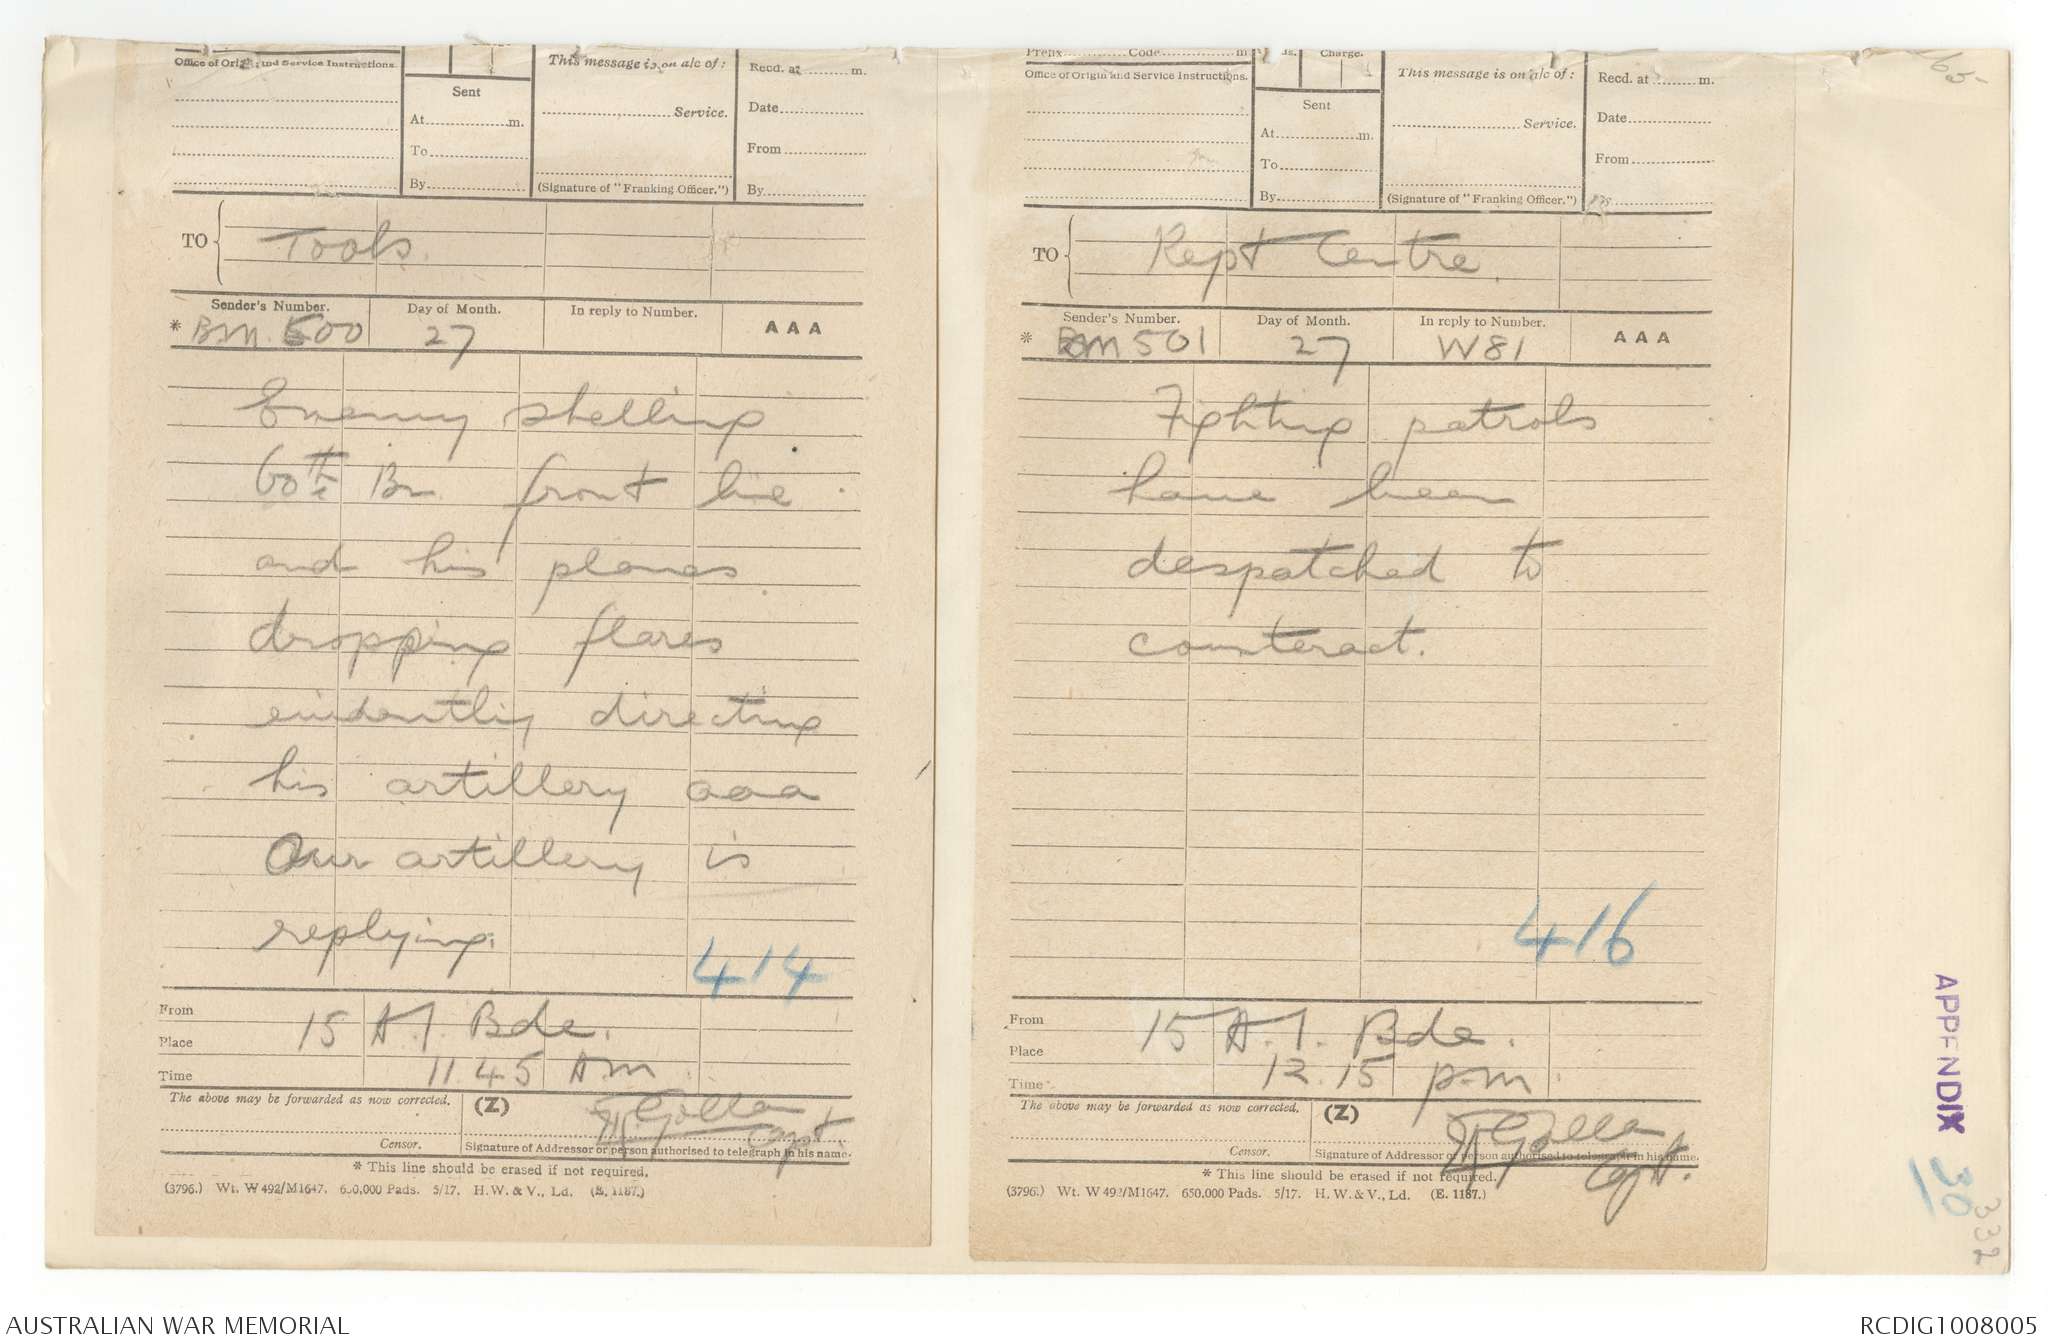 Office of Origin and Service Instructions.
Sent
At
m.
To
By
This message is on a/c of:
Service.
(Signature of "Franking Officer.")
Recd. at m.
Date
From
By
TO
Tools.
Sender's Number.
Day of Month.
In reply to Number.
AAA
* BM. 500
27
Enemy shelling
60th Bn front line
and his planes
dropping flares
evidently directing
his artillery aaa
Our artillery is
replying.
414
From
15 A.I. Bde.
Place
Time
11.45 AM
The above may be forwarded as now corrected.
(Z)
Capt.
Censor.
Signature of Addressor or person authorised to telegraph in his name.
* This line should be erased if not required.
(3796.) Wt. W 492/M1647. 650,000 Pads. 5/17. H. W. & V., Ld. (E. 1187.)
Prefix Code m
Charge.
Office of Origin and Service Instructions.
Sent
At m.
To
By
This message is on a/c of:
Service.
(Signature of "Franking Officer.")
Recd. at m.
Date
From
TO
Rept Centre.
Sender's Number.
Day of Month.
In reply to Number.
AAA
* BM 501
27
W81
Fighting patrols
have been
despatched to
counteract.
416
From
15 A.I. Bde.
Place
Time
12.15 p.m.
The above may be forwarded as now corrected.
(Z)
Capt.
Censor.
Signature of Addressor or person authorised to telegraph in his name.
* This line should be erased if not required.
(3796.) Wt. W 492/M1647. 650,000 Pads. 5/17. H. W. & V., Ld. (E. 1187.)
APPENDIX
30
332
AUSTRALIAN WAR MEMORIAL
RCDIG1008005